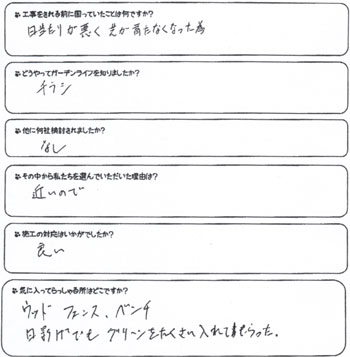 工事をされる前に困っていたことは何ですか?
日当たりが悪く 芝が育たなくなった為
どうやってガーデンライフを知りましたか?
チラシ
他に何社検討されましたか?
なし
その中から私たちを選んでいただいた理由は?
近いので
施工の対応はいかがでしたか?
良い
気に入ってらっしゃる所はどこですか?
ウッド フェンス、ベンチ
日影げでも グリーンをたくさん入れてもらった。